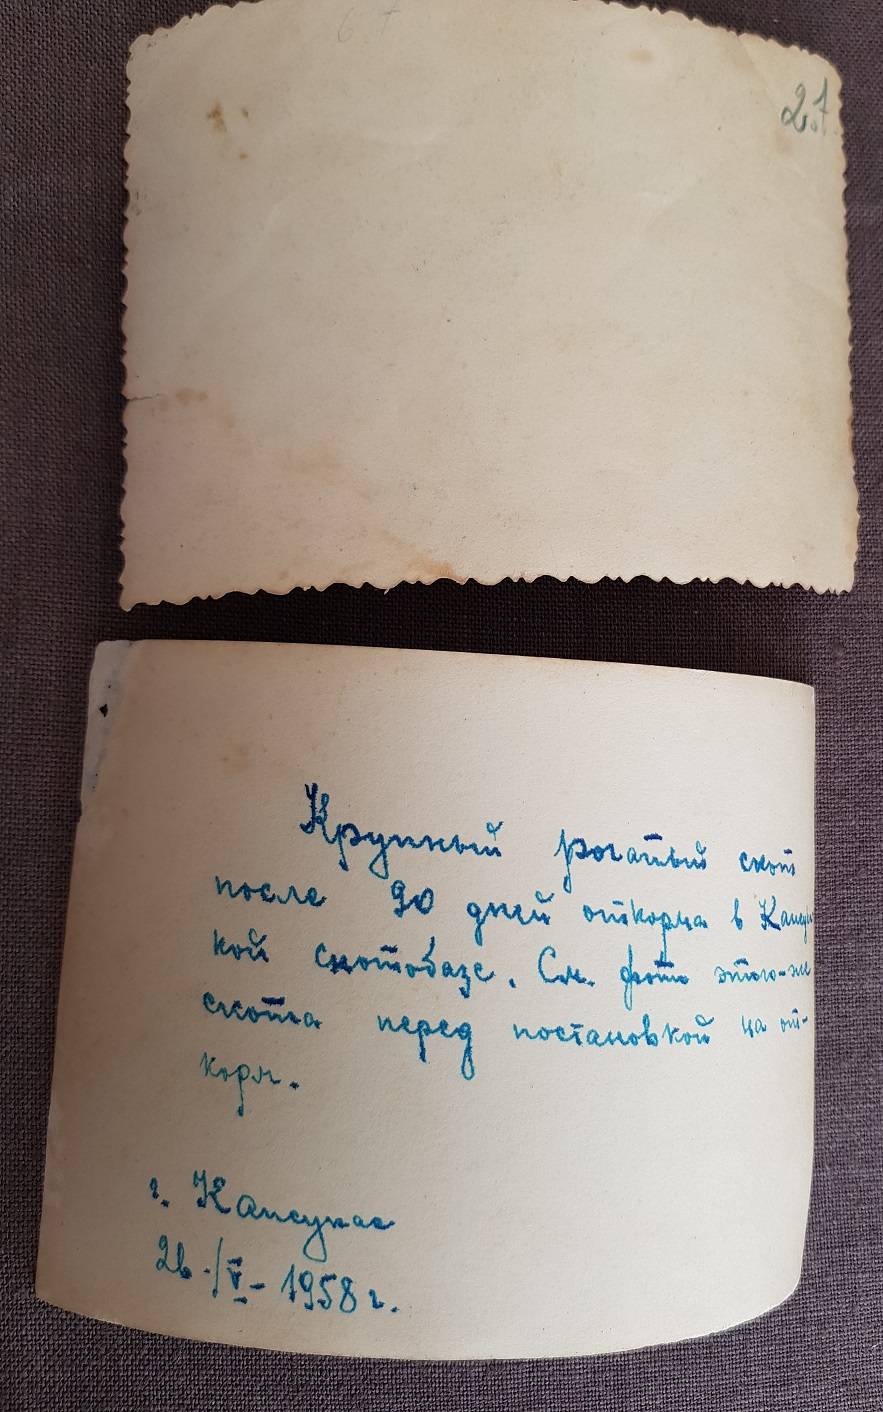 6.7
2.7.
Крупный рогатый скот
после 90 дней откорма в
кой скотобазе. См. фото этого-же
скота перед постановкой на от-
корм.
г. Капсукас
26-/V-1958 г.